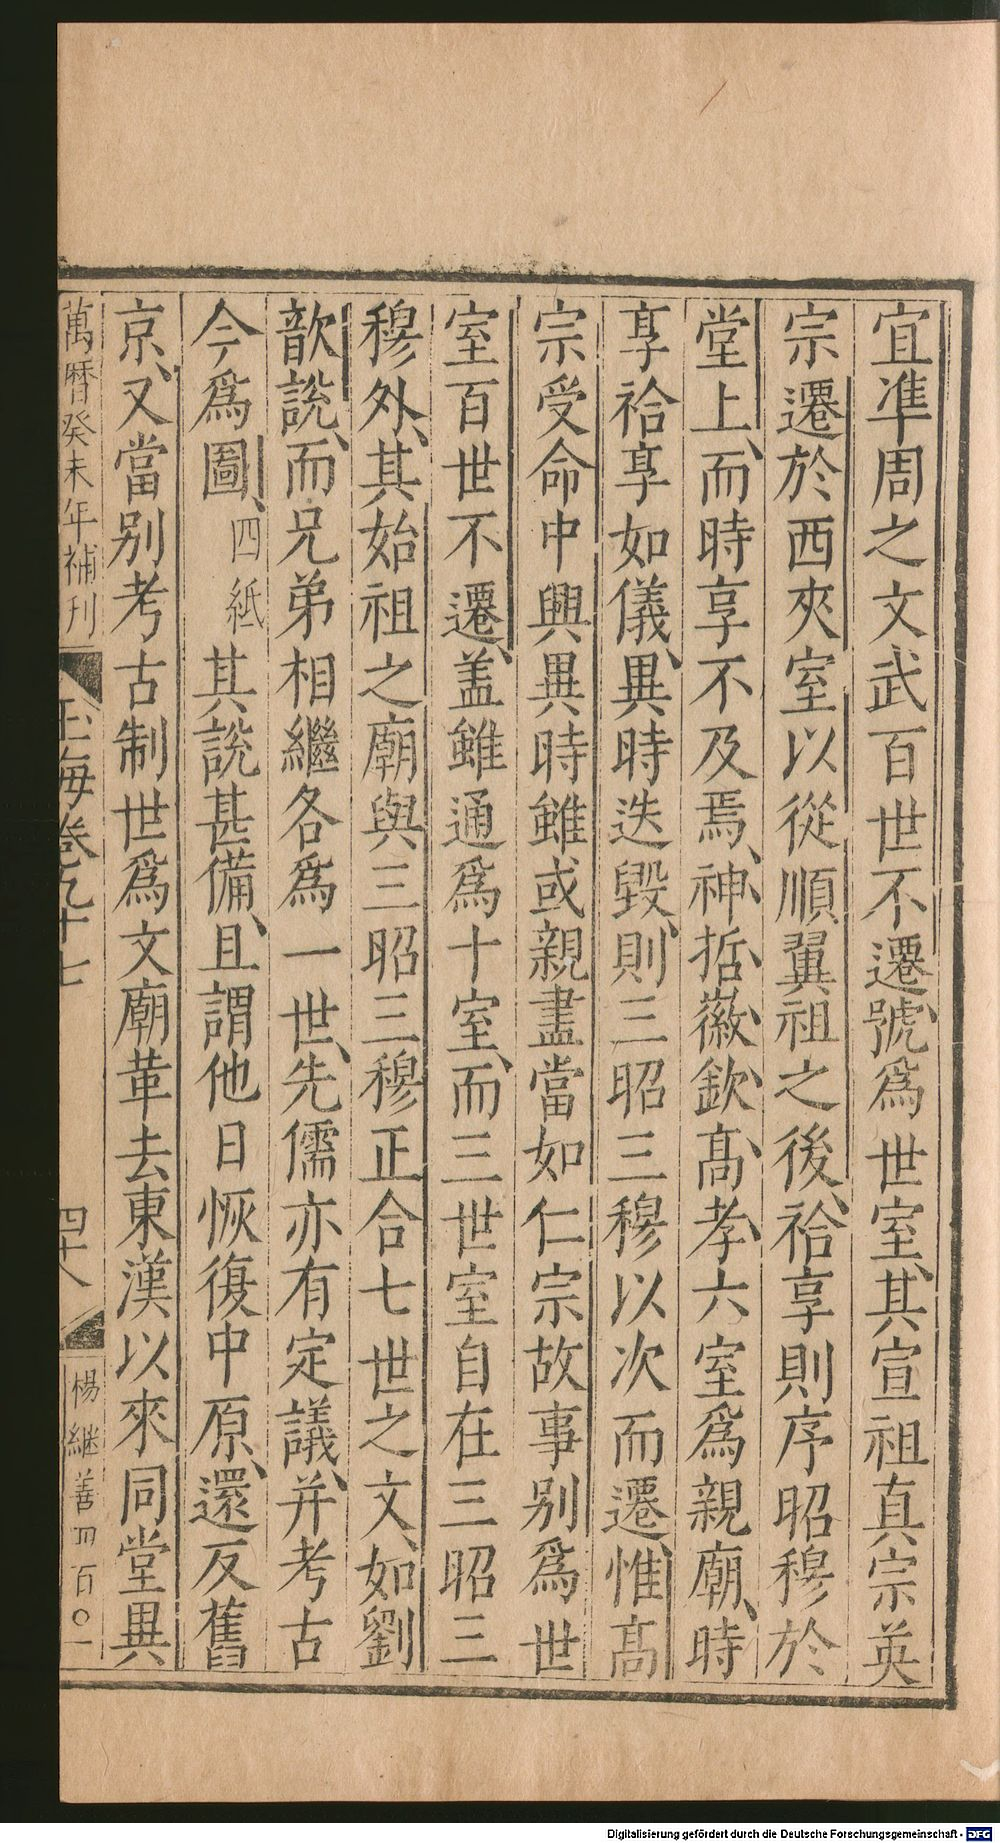 宜準周之文武百世不遷號爲世室其宣祖真宗英
宗遷於西夾室以從順翼祖之後祫享則序昭穆於
堂上而時享不及焉神哲徽欽髙孝六室爲親廟時
享祫享如儀異時迭毀則三昭三穆以次而遷惟髙
宗受命中興異時雖或親盡當如仁宗故事别爲世
室百世不遷盖雖通爲十室而三世室自在三昭三
穆外其始祖之廟與三昭三穆正合七世之文如劉
歆說而兄弟相繼各爲一世先儒亦有定議并考古
今爲圖四紙其說甚備且謂他日恢復中原還反舊
京又當别考古制世爲文廟革去東漢以來同堂異
萬曆癸未年補刊
玉海卷九十七
四十八
楊継善四百〇一
Digitalisierung gefördert durch die Deutsche Forschungsgemeinschaft - DFG